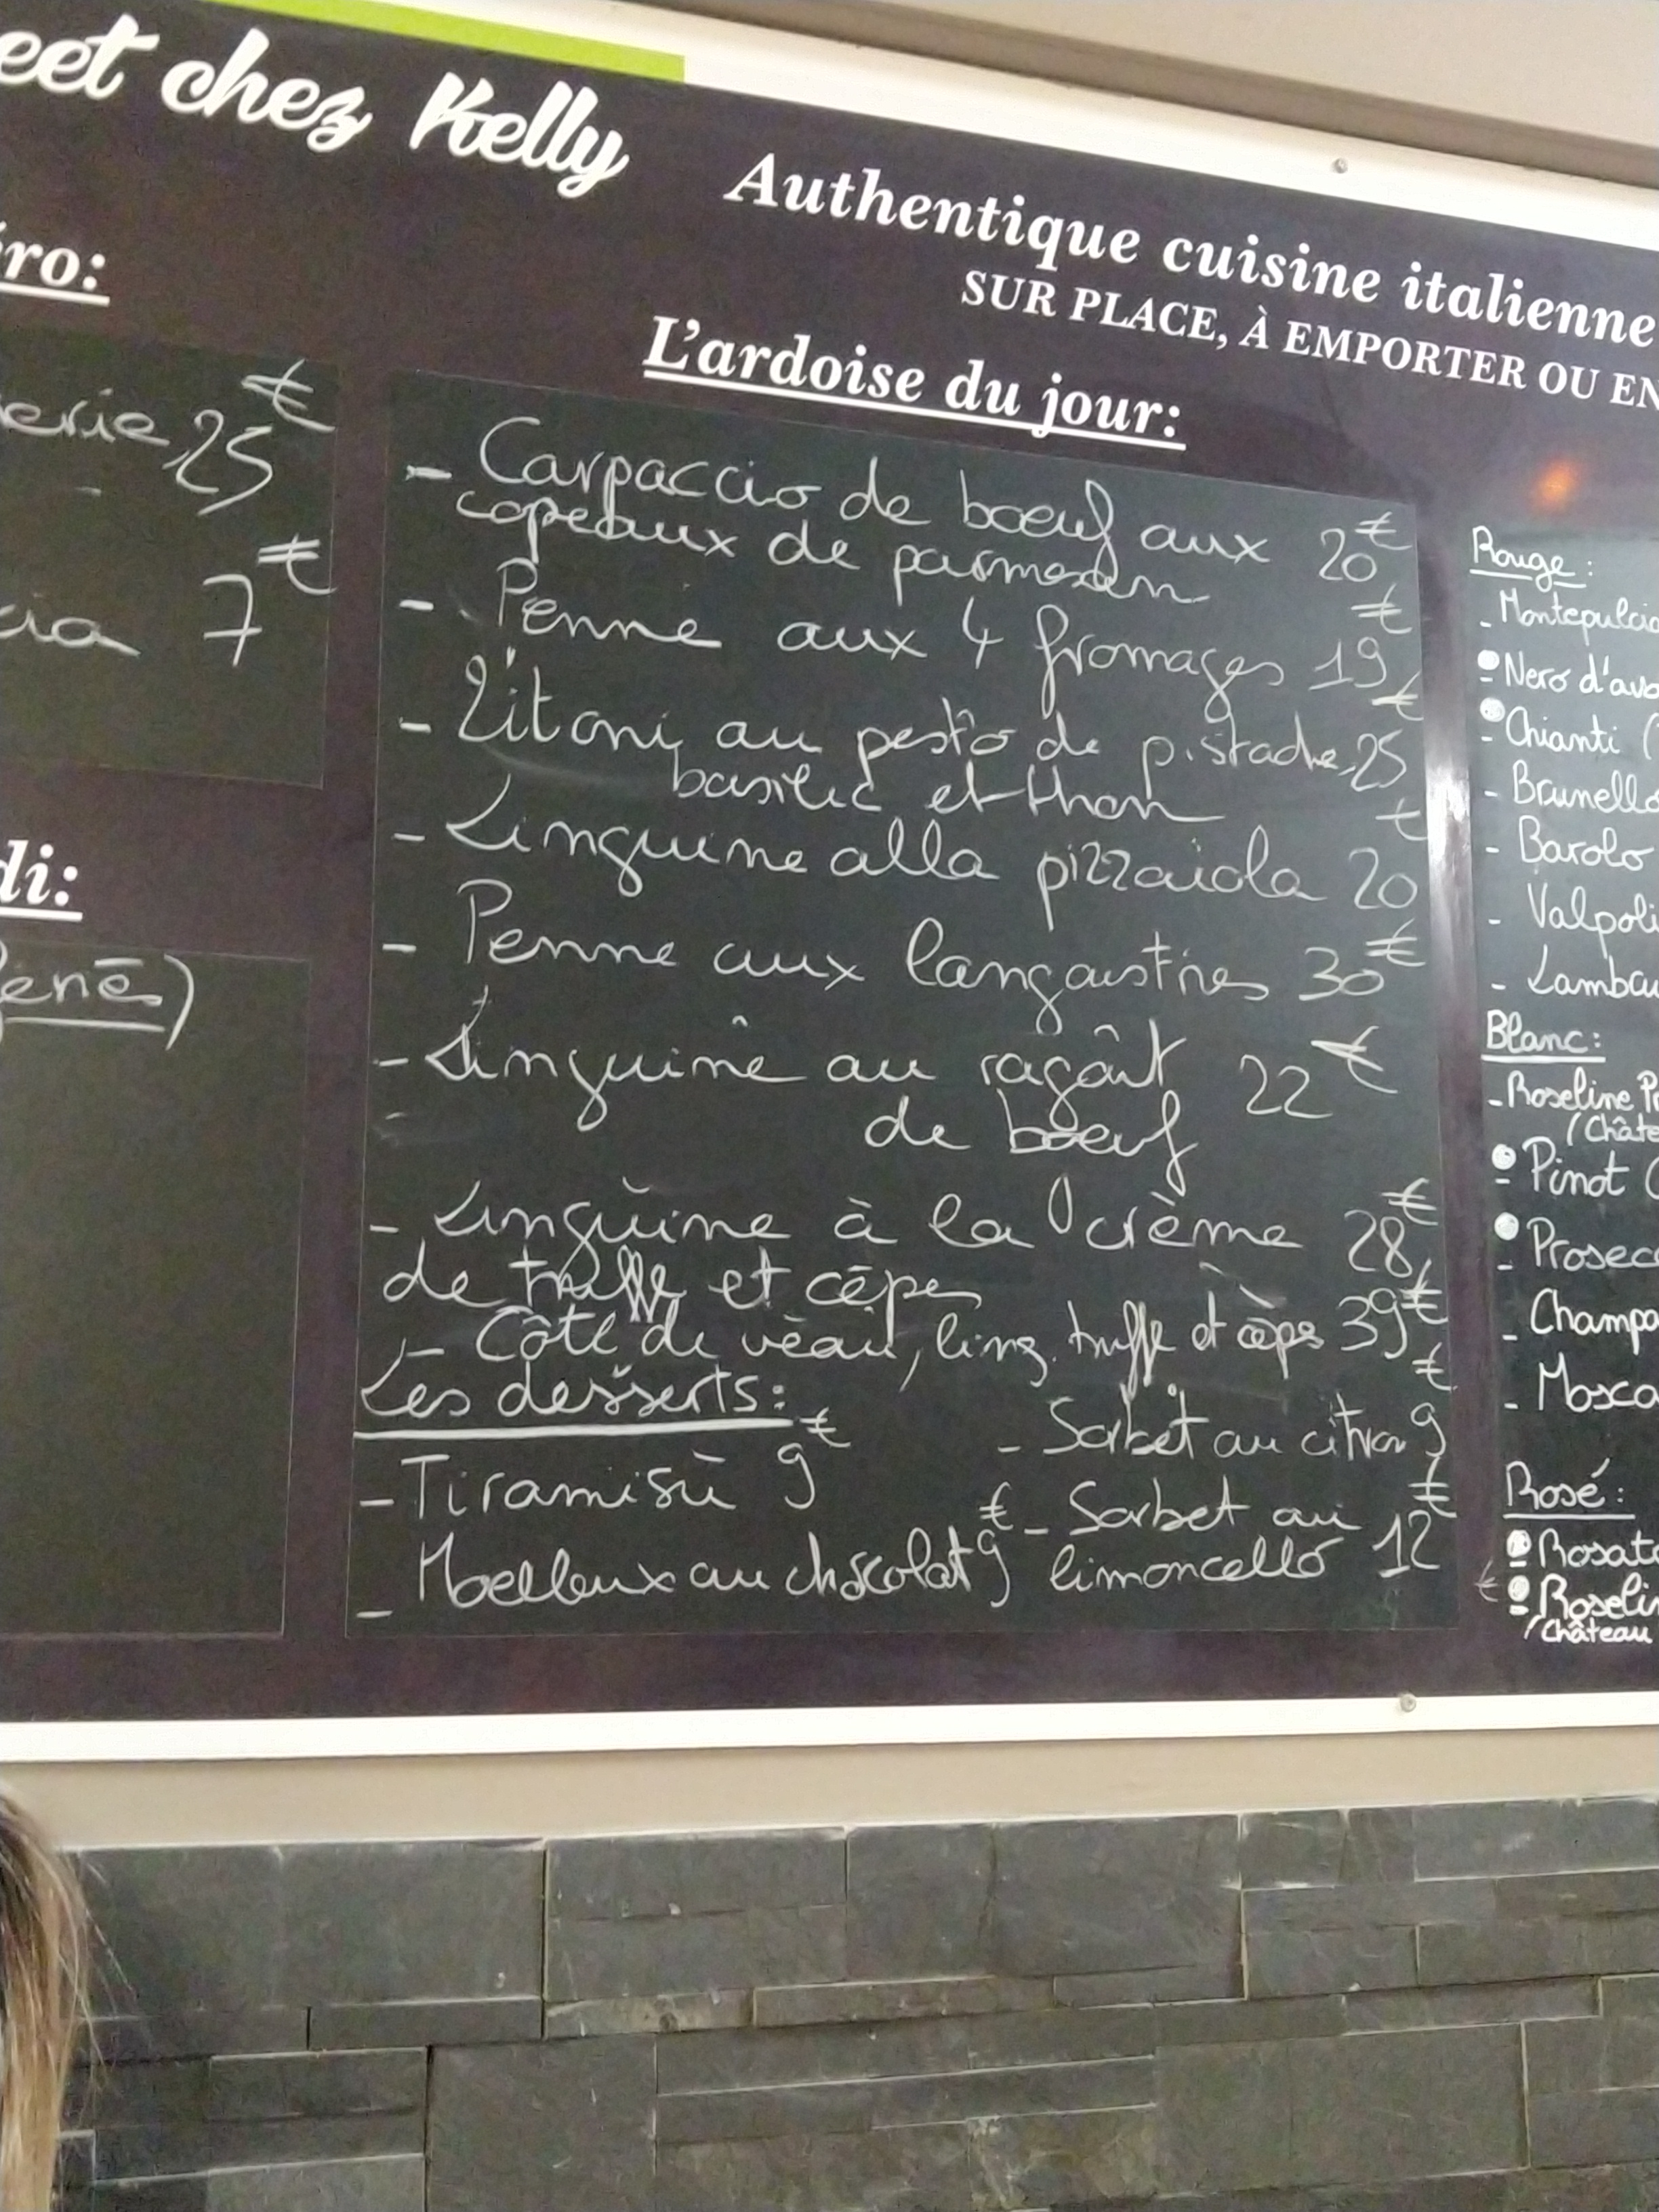 eet chez Kelly
Authentique cuisine italienne
SUR PLACE, À EMPORTER OU EN
éro:
erie 25€
cia 7€
di:
L'ardoise du jour:
- Carpaccio de bœuf aux 20€
copeaux de parmesan
- Penne aux 4 fromages 19€
- Zitoni au pesto de pistache, 25€
basilic et thon
- Linguine alla pizzaiola 20€
- Penne aux langoustines 30€
- Linguine au ragoût 22€
de bœuf
- Linguine à la crème 28€
de truffe et cèpes
- Côte de veau, ling. truffe et cèpes 39€
Les desserts:
- Tiramisù 9€
- Moelleux au chocolat 9€
- Sorbet au citron 9€
- Sorbet au
limoncello 12€
Rouge:
- Montepulcia
- Nero d'avo
- Chianti (
- Brunello
- Barolo
- Valpoli
- Lambru
Blanc:
- Roseline Pr
(Châte
- Pinot (
- Prosecc
- Champa
- Mosca
Rosé:
- Rosato
€ - Roselin
(Château